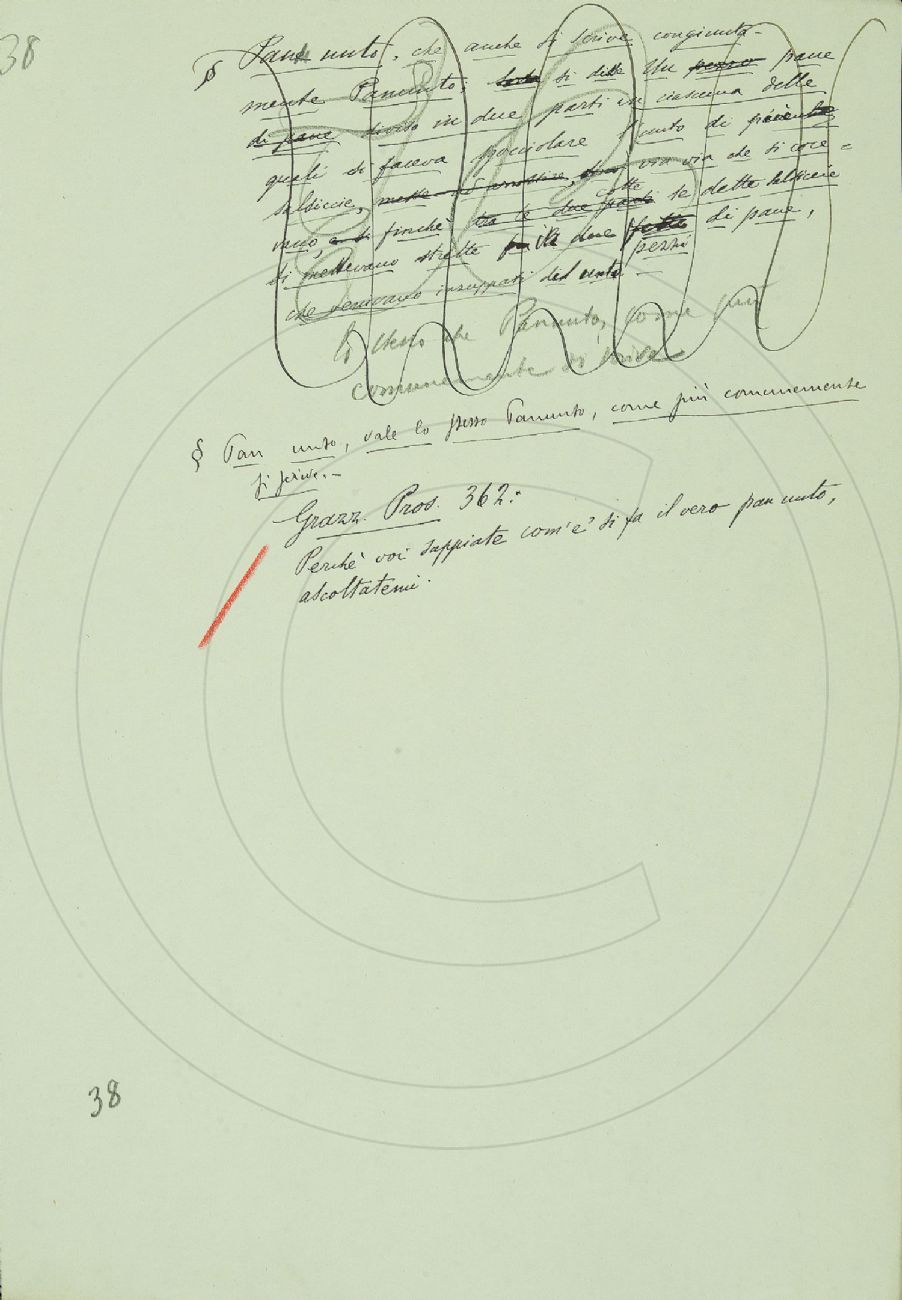 38
§ Pan unto, che anche si scrive congiunta-
mente Panunto; si disse Un pezzo pane
di pane diviso in due parti in ciascuna delle
quali si faceva gocciolare l'unto di
salsiccie, messe ad arrostire, via via che si coce=
vano, e si finchè tra le due parti
cotte le dette salsiccie
si mettevano strette fra le due fette di pane,
pezzi
che venivano insuppati del unto. —
Lo stesso che Panunto, come più
comunemente si scrive
§ Pan unto, vale lo stesso Panunto, come più comunemente
si scrive. —
Grazz. Pros. 362:
Perchè voi sappiate com'e' si fa il vero pan unto,
ascoltatemi.
38